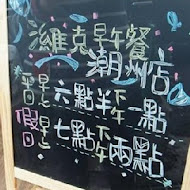 濰克早午餐
潮州店
平日 早上 六點半 下午 一點
假日 早上 七點 下午 兩點